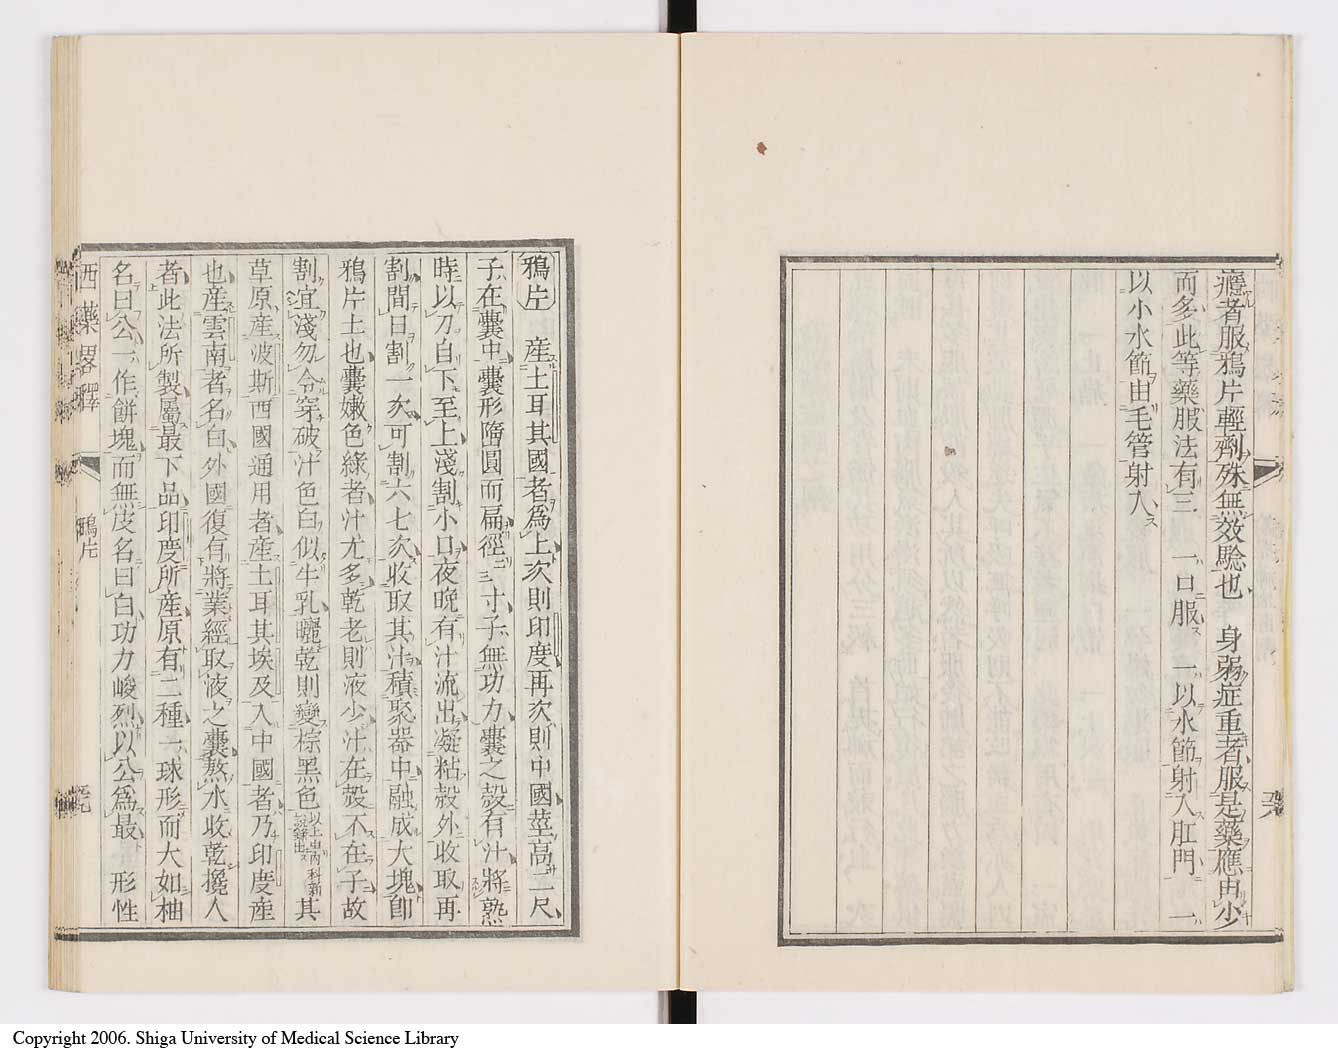 癮者服鴉片輕劑殊無效驗也　身弱症重者服是藥應由少
而多此等藥服法有三　一口服　一以水節射入肛門　一
以小水節由毛管射入
鴉片　產土耳其國者爲上次則印度再次則中國莖高二尺
子在囊中囊形隋圓而扁徑三寸子無功力囊之殼有汁將熟
時以刀自下至上淺割小口夜晚有汁流出凝粘殼外收取再
割間日割一次可割六七次收取其汁積聚器中融成大塊卽
鴉片土也囊嫩色綠者汁尤多乾老則液少汁在殼不在子故
割宜淺勿令穿破汁色白似牛乳曬乾則變棕黑色以上出內科新說錄出其
草原產波斯西國通用者產土耳其埃及入中國者乃印度產
也產雲南者名白外國復有將業經取液之囊熬水收乾攙入
者此法所製屬最下品印度所產原有二種一球形而大如柚
名曰公一作餅塊而無皮名曰白功力峻烈以公爲最　形性
西藥畧釋
鴉片
Copyright 2006. Shiga University of Medical Science Library